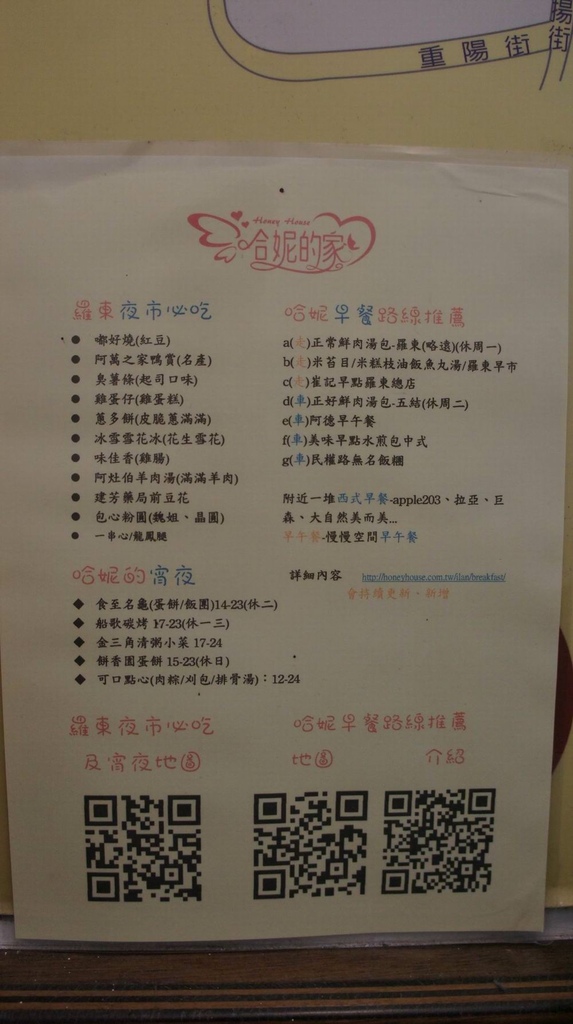 重陽街
陽街
Honey House
哈妮的家
羅東夜市必吃
● 嘟好燒(紅豆)
● 阿萬之家鴨賞(名產)
● 臭薯條(起司口味)
● 雞蛋仔(雞蛋糕)
● 蔥多餅(皮脆蔥滿滿)
● 冰雪雪花冰(花生雪花)
● 味佳香(雞腸)
● 阿灶伯羊肉湯(滿滿羊肉)
● 建芳藥局前豆花
● 包心粉圓(魏姐、晶圓)
● 一串心/龍鳳腿
哈妮的宵夜
◆ 食至名龜(蛋餅/飯團)14-23(休二)
◆ 船歌碳烤 17-23(休一三)
◆ 金三角清粥小菜 17-24
◆ 餅香園蛋餅 15-23(休日)
◆ 可口點心(肉粽/刈包/排骨湯)：12-24
哈妮早餐路線推薦
a(走)正常鮮肉湯包-羅東(略遠)(休周一)
b(走)米苔目/米糕枝油飯魚丸湯/羅東早市
c(走)崔記早點羅東總店
d(車)正好鮮肉湯包-五結(休周二)
e(車)阿德早午餐
f(車)美味早點水煎包中式
g(車)民權路無名飯糰
附近一堆西式早餐-apple203、拉亞、巨
森、大自然美而美...
早午餐-慢慢空間早午餐
詳細內容 http://honeyhouse.com.tw/ilan/breakfast/
會持續更新、新增
羅東夜市必吃
及宵夜地圖
哈妮早餐路線推薦
地圖 介紹